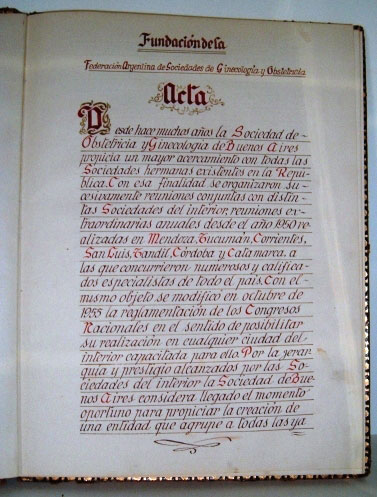 Fundación de la
Federación Argentina de Sociedades de Ginecología y Obstetricia
Acta
Desde hace muchos años la Sociedad de
Obstetricia y Ginecología de Buenos Aires
propicia un mayor acercamiento con todas las
Sociedades hermanas existentes en la Repú-
blica. Con esa finalidad se organizaron su-
cesivamente reuniones conjuntas con distin-
tas Sociedades del interior, reuniones ex-
traordinarias anuales desde el año 1950 re-
alizadas en Mendoza, Tucumán, Corrientes,
San Luis, Tandil, Córdoba y Catamarca, a
las que concurrieron numerosos y califica-
dos especialistas de todo el país. Con el
mismo objeto se modificó en octubre de
1955 la reglamentación de los Congresos
Nacionales en el sentido de posibilitar
su realización en cualquier ciudad del
interior capacitada para ello. Por la jerar-
quía y prestigio alcanzados por las So-
ciedades del interior la Sociedad de Bue-
nos Aires considera llegado el momento
oportuno para propiciar la creación de
una entidad que agrupe a todas las ya